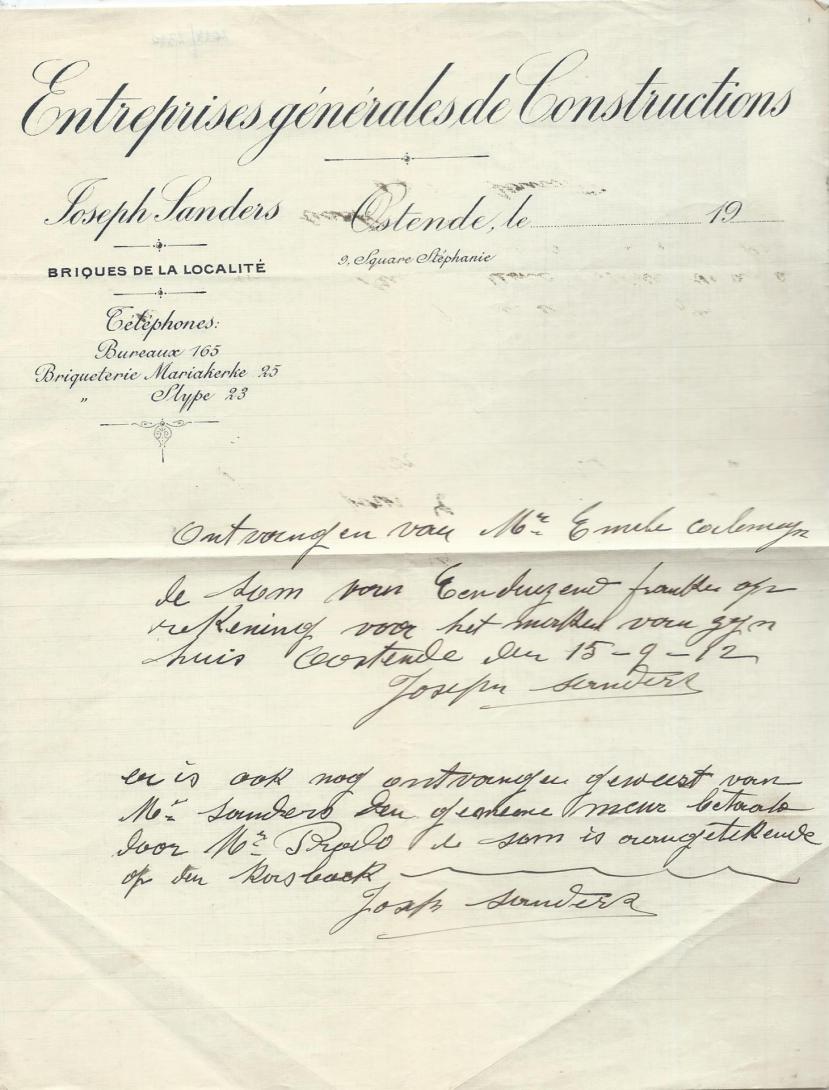 Entreprises générales de Constructions
Joseph Sanders
Ostende, le 19
BRIQUES DE LA LOCALITÉ
9, Square Stéphanie
Téléphones:
Bureaux 165
Briqueterie Mariakerke 25
" Slype 23
Ontvangen van Mr. Emile
de som van Eenduizend franken op
rekening voor het maken van zyn
huis Oostende den 15-9-12
Joseph Sanders
er is ook nog ontvangen geweest van
Mr. Sanders den gemeene meur betaald
door Mr. de som is aangetekende
op den
Josph Sanders